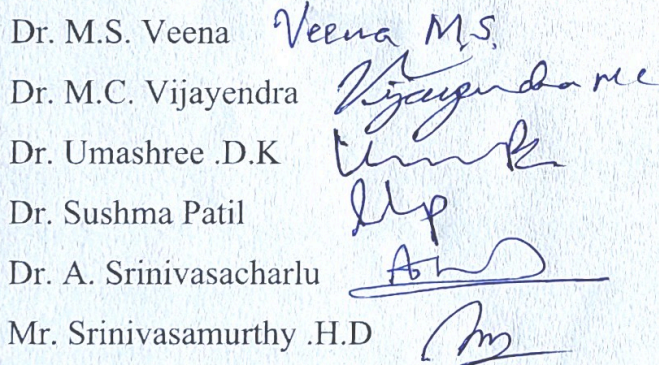 Dr. M.S. Veena Veena M.S.
Dr. M.C. Vijayendra Vijayendra M C
Dr. Umashree .D.K
Dr. Sushma Patil
Dr. A. Srinivasacharlu
Mr. Srinivasamurthy .H.D